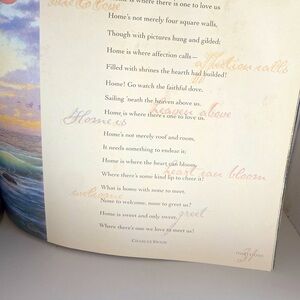 is where there is one to love us
sure to love
Home's not merely four square walls,
Though with pictures hung and gilded:
Home is where affection calls—
affection calls
Filled with shrines the hearth had builded!
Home! Go watch the faithful dove,
Sailing 'neath the heaven above us.
heaven above
Home is where there's one to love us.
Home is
Home's not merely roof and room,
It needs something to endear it;
Home is where the heart can bloom,
heart can bloom
Where there's some kind lip to cheer it!
What is home with none to meet,
welcome
None to welcome, none to greet us?
greet
Home is sweet and only sweet,
Where there's one we love to meet us!
Charles Swain